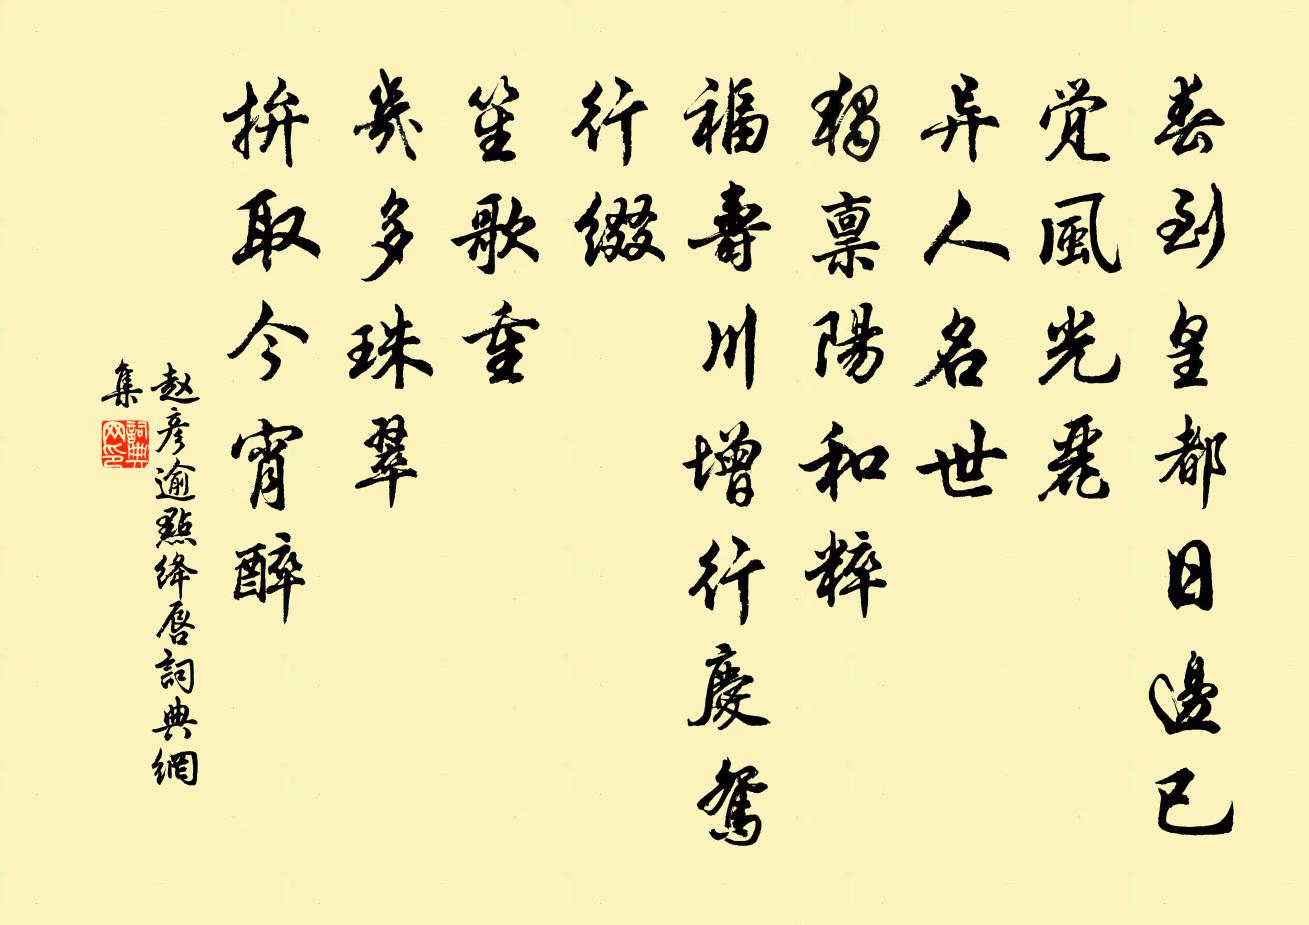 春到皇都日邊已
覚風光麗
异人名世
獨禀陽和粹
福壽川增行慶鴛
行綴
笙歌重
幾多珠翠
拚取今宵醉
赵彦逾點絳唇詞典網
集
詞典網印